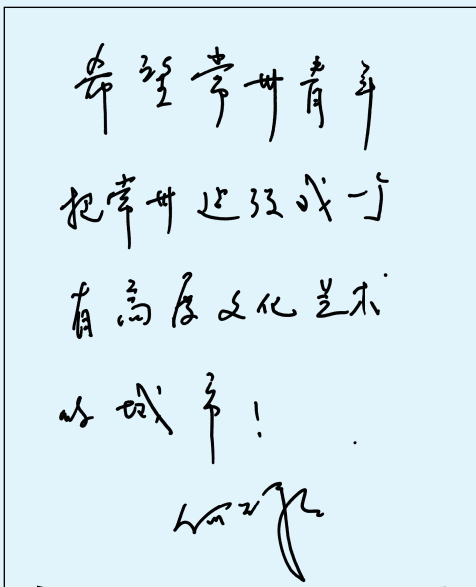 希望常州青年
把常州建设成一个
有高度文化艺术
的城市!